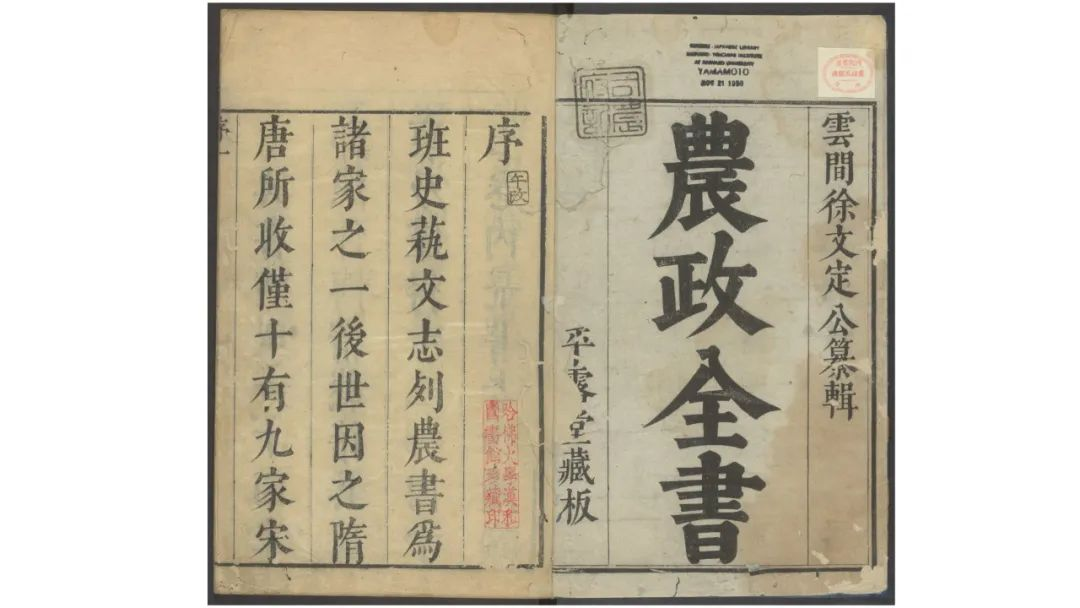 雲間徐文定公纂輯
農政全書
平露堂藏板
YAMAMOTO
序
班史蓺文志列農書爲
諸家之一後世因之隋
唐所收僅十有九家宋
哈佛大學漢和
圖書館珍藏印
序一